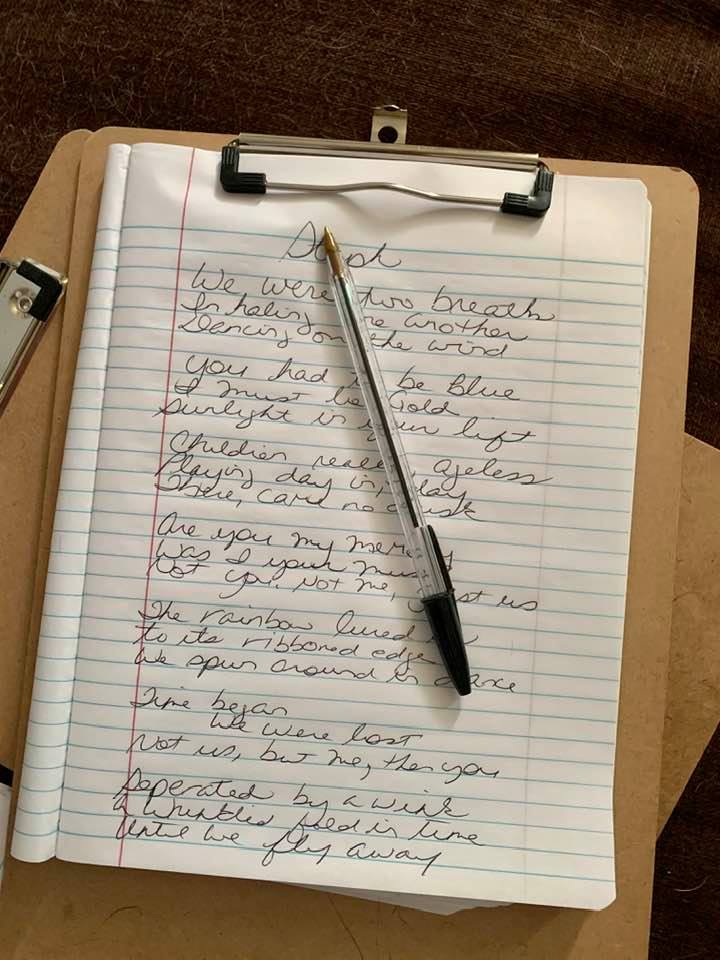 We were two breath
Inhaling one another
Dancing on the wind
You had to be Blue
I must be Gold
Sunlight in your lift
Children really, ageless
Playing day in, day
There, came no dusk
Are you my
Was I your muse
Not you. Not me, just us
The rainbow lured
to its ribboned edge
We spun around in dance
Time began
We were lost
Not us, but me, then you
Seperated by a wink
a wrinkled fold in time
Until we fly away